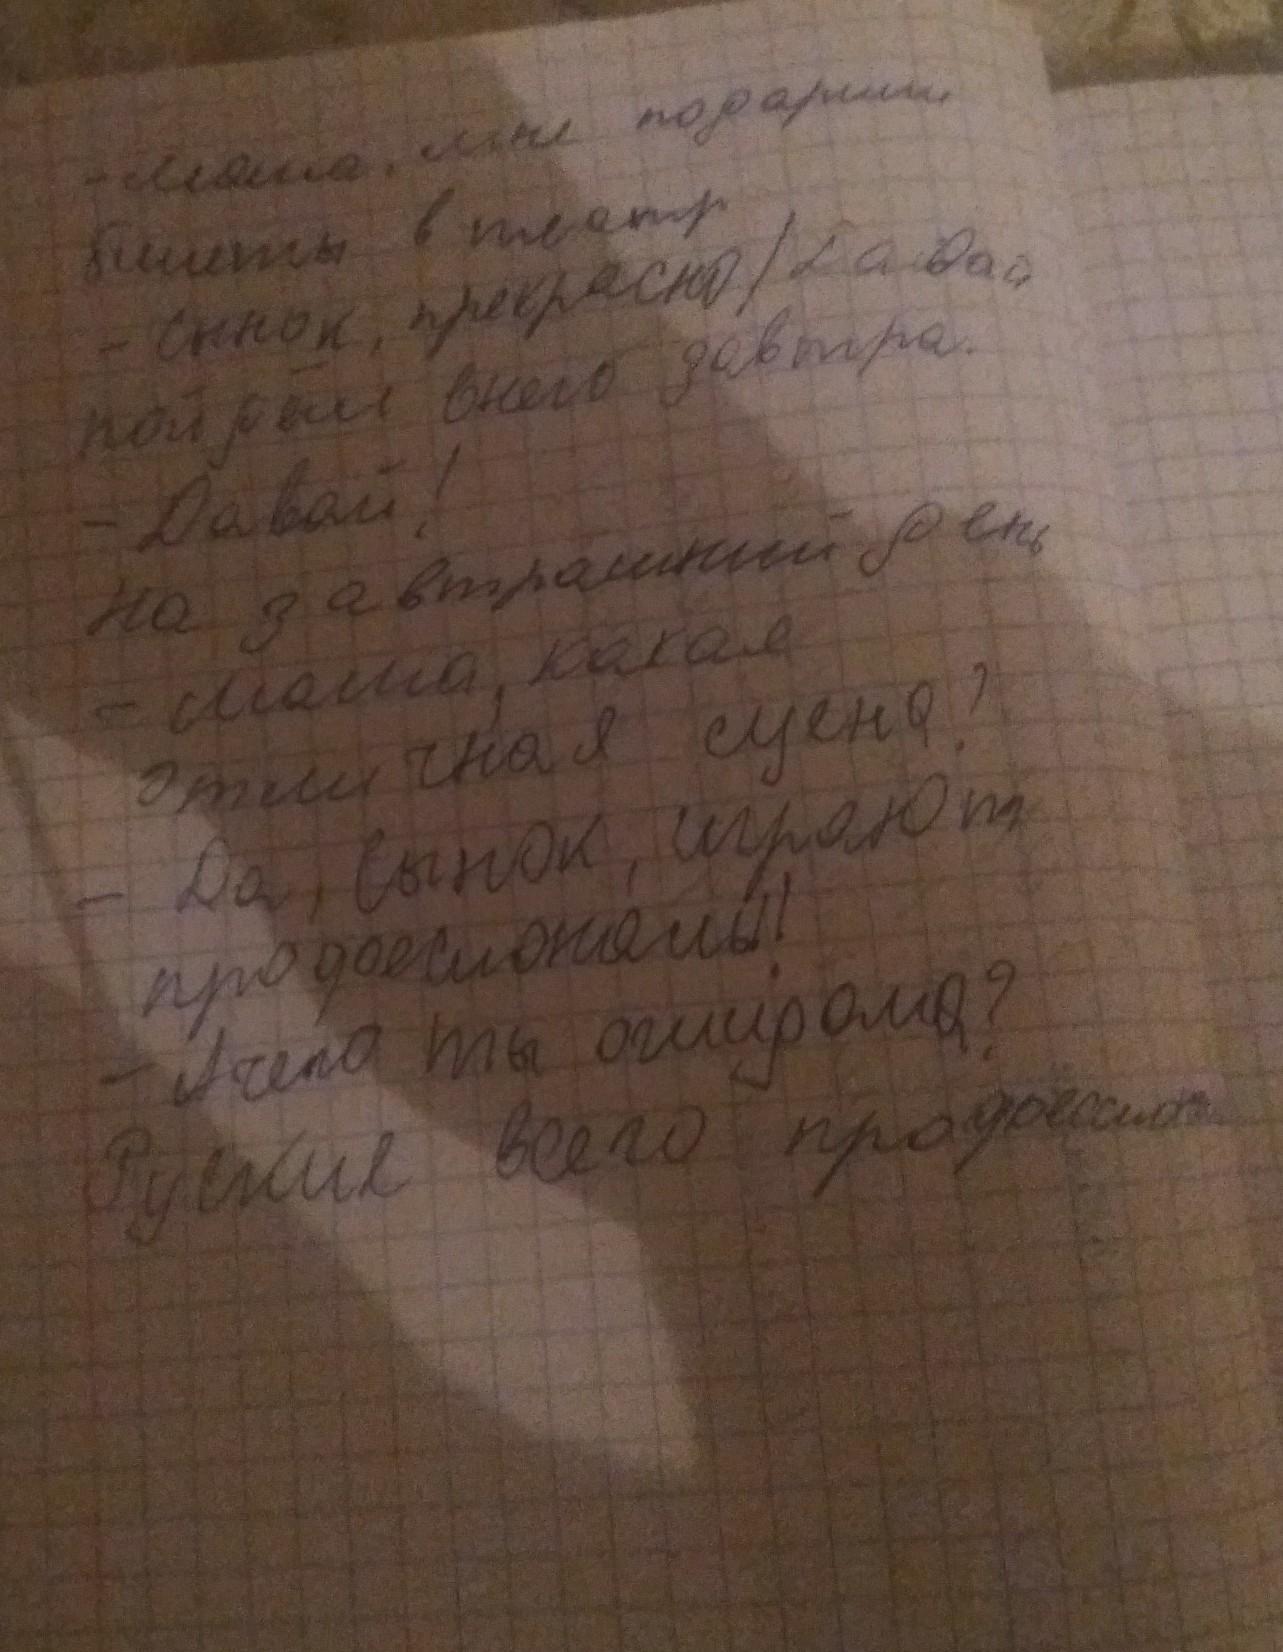 - Мама, мне подарили
билеты в театр
- Сынок, прекрасно! Давай
пойдём в него завтра.
- Давай!
На завтрашний день
- Мама, какая
отличная сцена?
- Да, сынок, играют
профессионалы!
- А чего ты
Руские всего